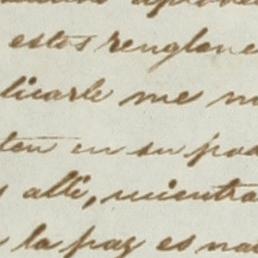 estos renglone
licarle me m
ten en su pod
alli, mientra
la paz es na